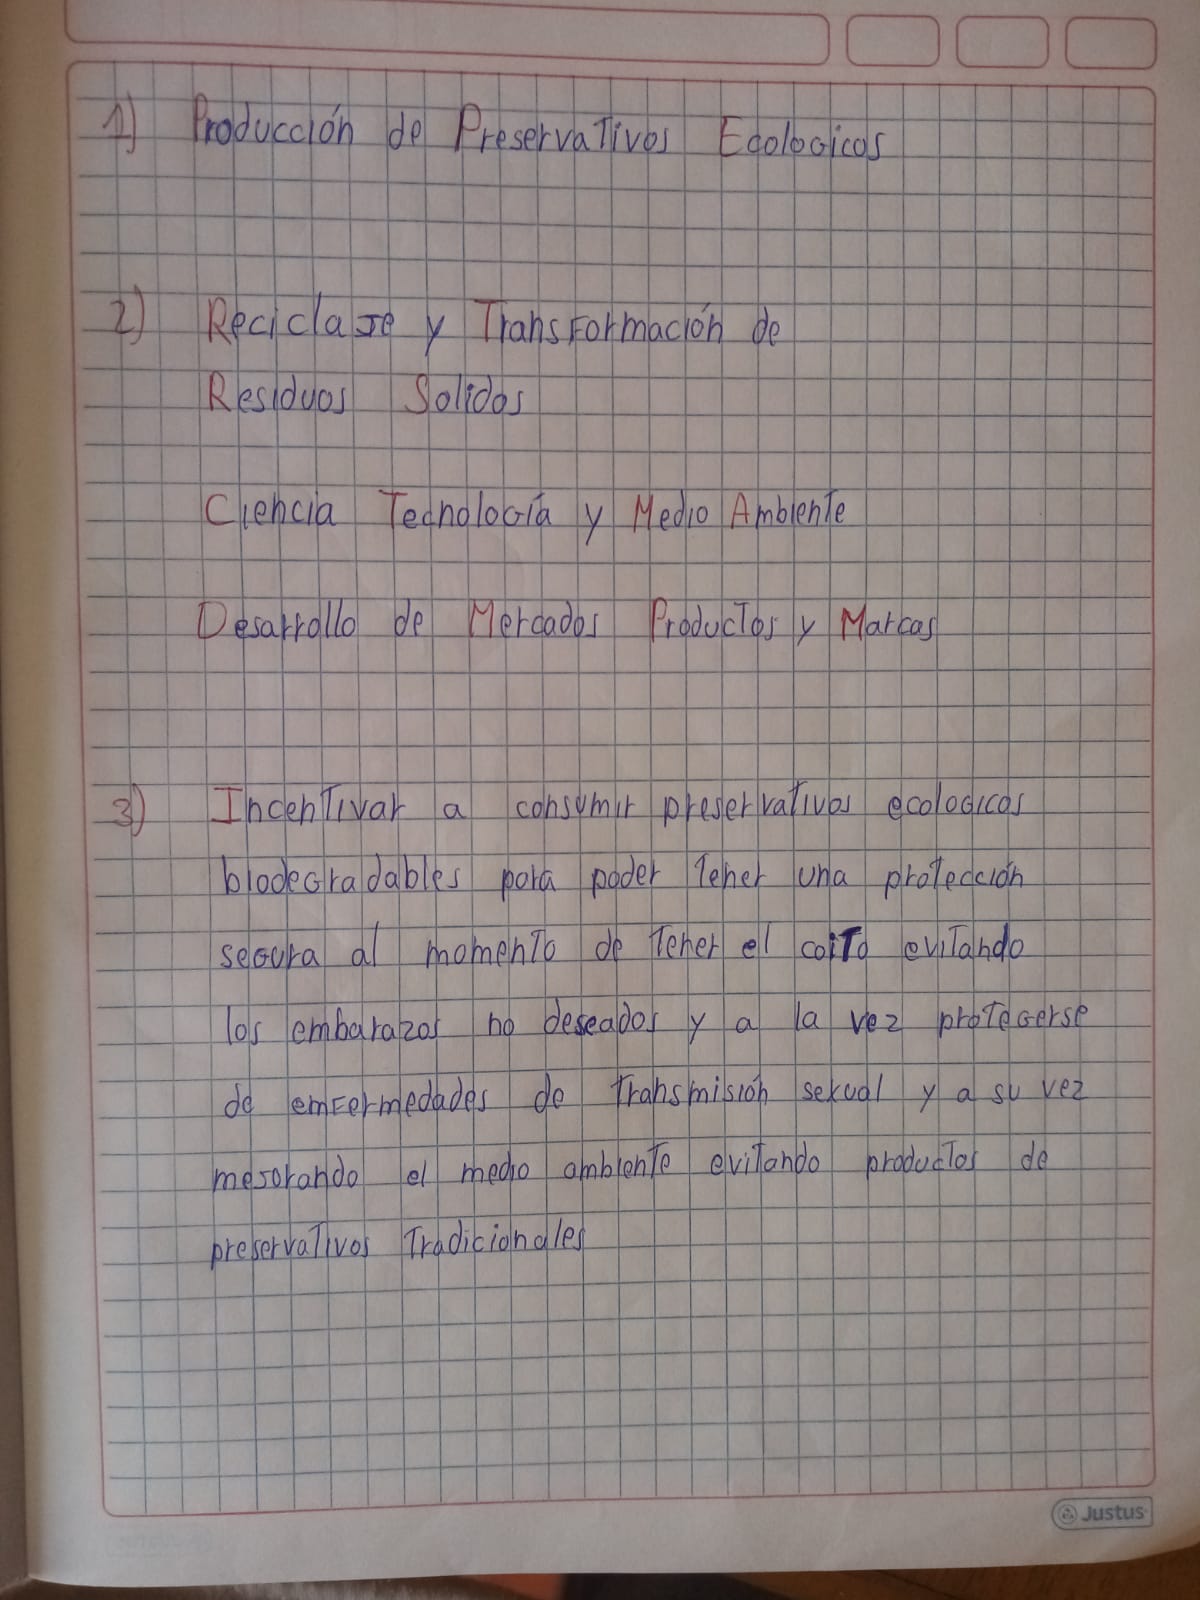 1) Producción de Preservativos Ecologicos
2) Reciclaje y Transformación de
Residuos Solidos
Ciencia Tecnología y Medio Ambiente
Desarrollo de Mercados Productos y Marcas
3) Incentivar a consumir preservativos ecologicos
biodegradables para poder tener una protección
segura al momento de tener el coito evitando
los embarazos no deseados y a la vez protegerse
de emfermedades de transmisión sexual y a su vez
mejorando el medio ambiente evitando productos de
preservativos tradicionales
Justus